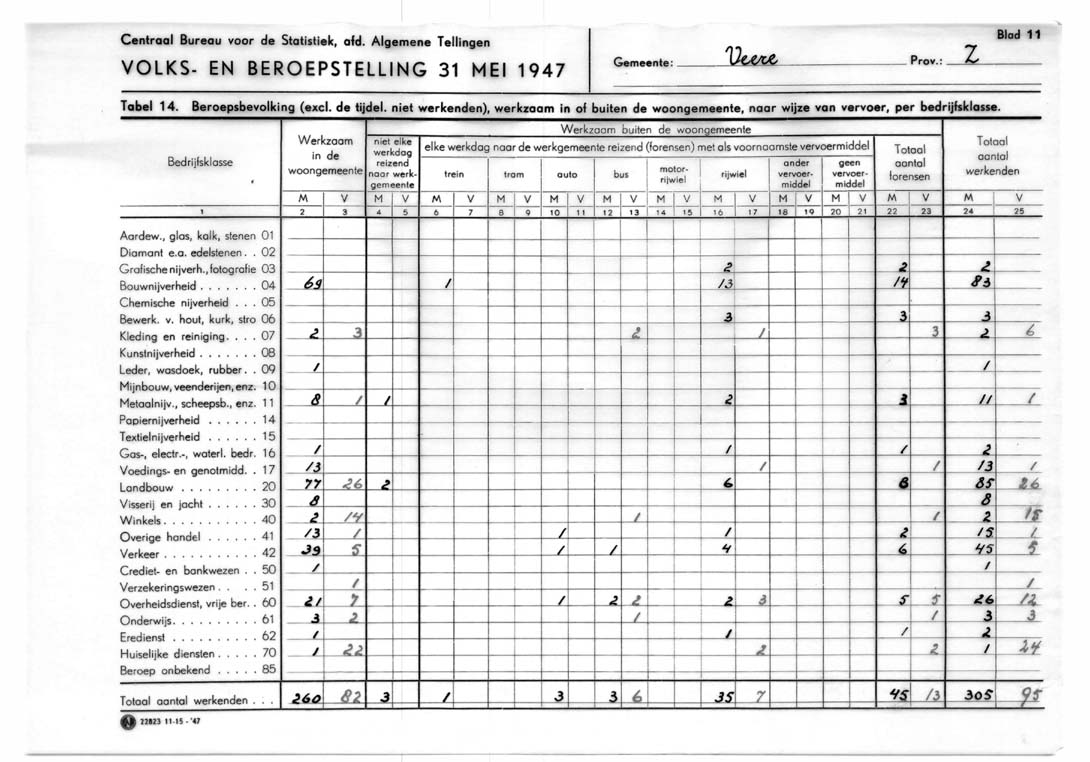 Centraal Bureau voor de Statistiek, afd. Algemene Tellingen
VOLKS- EN BEROEPSTELLING 31 MEI 1947
Gemeente: Veere Prov.: Z
Blad 11
Tabel 14. Beroepsbevolking (excl. de tijdel. niet werkenden), werkzaam in of buiten de woongemeente, naar wijze van vervoer, per bedrijfsklasse.
Bedrijfsklasse
Werkzaam in de woongemeente
Werkzaam buiten de woongemeente
niet elke werkdag reizend naar werk-gemeente
elke werkdag naar de werkgemeente reizend (forensen) met als voornaamste vervoermiddel
trein tram auto bus motor-rijwiel rijwiel ander vervoer-middel geen vervoer-middel
Totaal aantal forensen
Totaal aantal werkenden
M V M V M V M V M V M V M V M V M V M V M V M V
1 2 3 4 5 6 7 8 9 10 11 12 13 14 15 16 17 18 19 20 21 22 23 24 25
Aardew., glas, kalk, stenen 01
Diamant e.a. edelstenen . . 02
Grafische nijverh., fotografie 03 2 2 2
Bouwnijverheid . . . . . . . 04 69 1 13 14 83
Chemische nijverheid . . . 05
Bewerk. v. hout, kurk, stro 06 3 3 3
Kleding en reiniging. . . . 07 2 3 2 1 3 2 6
Kunstnijverheid . . . . . . . 08
Leder, wasdoek, rubber. . 09 1 1
Mijnbouw, veenderijen, enz. 10
Metaalnijv., scheepsb., enz. 11 8 1 1 2 3 11 1
Papiernijverheid . . . . . . 14
Textielnijverheid . . . . . . 15
Gas-, electr.-, waterl. bedr. 16 1 1 1 2
Voedings- en genotmidd. . 17 13 1 1 13 1
Landbouw . . . . . . . . . 20 77 26 2 6 8 85 26
Visserij en jacht . . . . . . 30 8 8
Winkels. . . . . . . . . . . 40 2 14 1 1 2 15
Overige handel . . . . . . 41 13 1 1 1 2 15 1
Verkeer . . . . . . . . . . . 42 39 5 1 1 4 6 45 5
Crediet- en bankwezen . . 50 1 1
Verzekeringswezen . . . . 51 1 1
Overheidsdienst, vrije ber. . 60 21 7 1 2 2 2 3 5 5 26 12
Onderwijs. . . . . . . . . . 61 3 2 1 1 3 3
Eredienst . . . . . . . . . . 62 1 1 1 2
Huiselijke diensten . . . . . 70 1 22 2 2 1 24
Beroep onbekend . . . . . 85
Totaal aantal werkenden . . . 260 82 3 1 3 3 6 35 7 45 13 305 95
22823 11-15 - '47